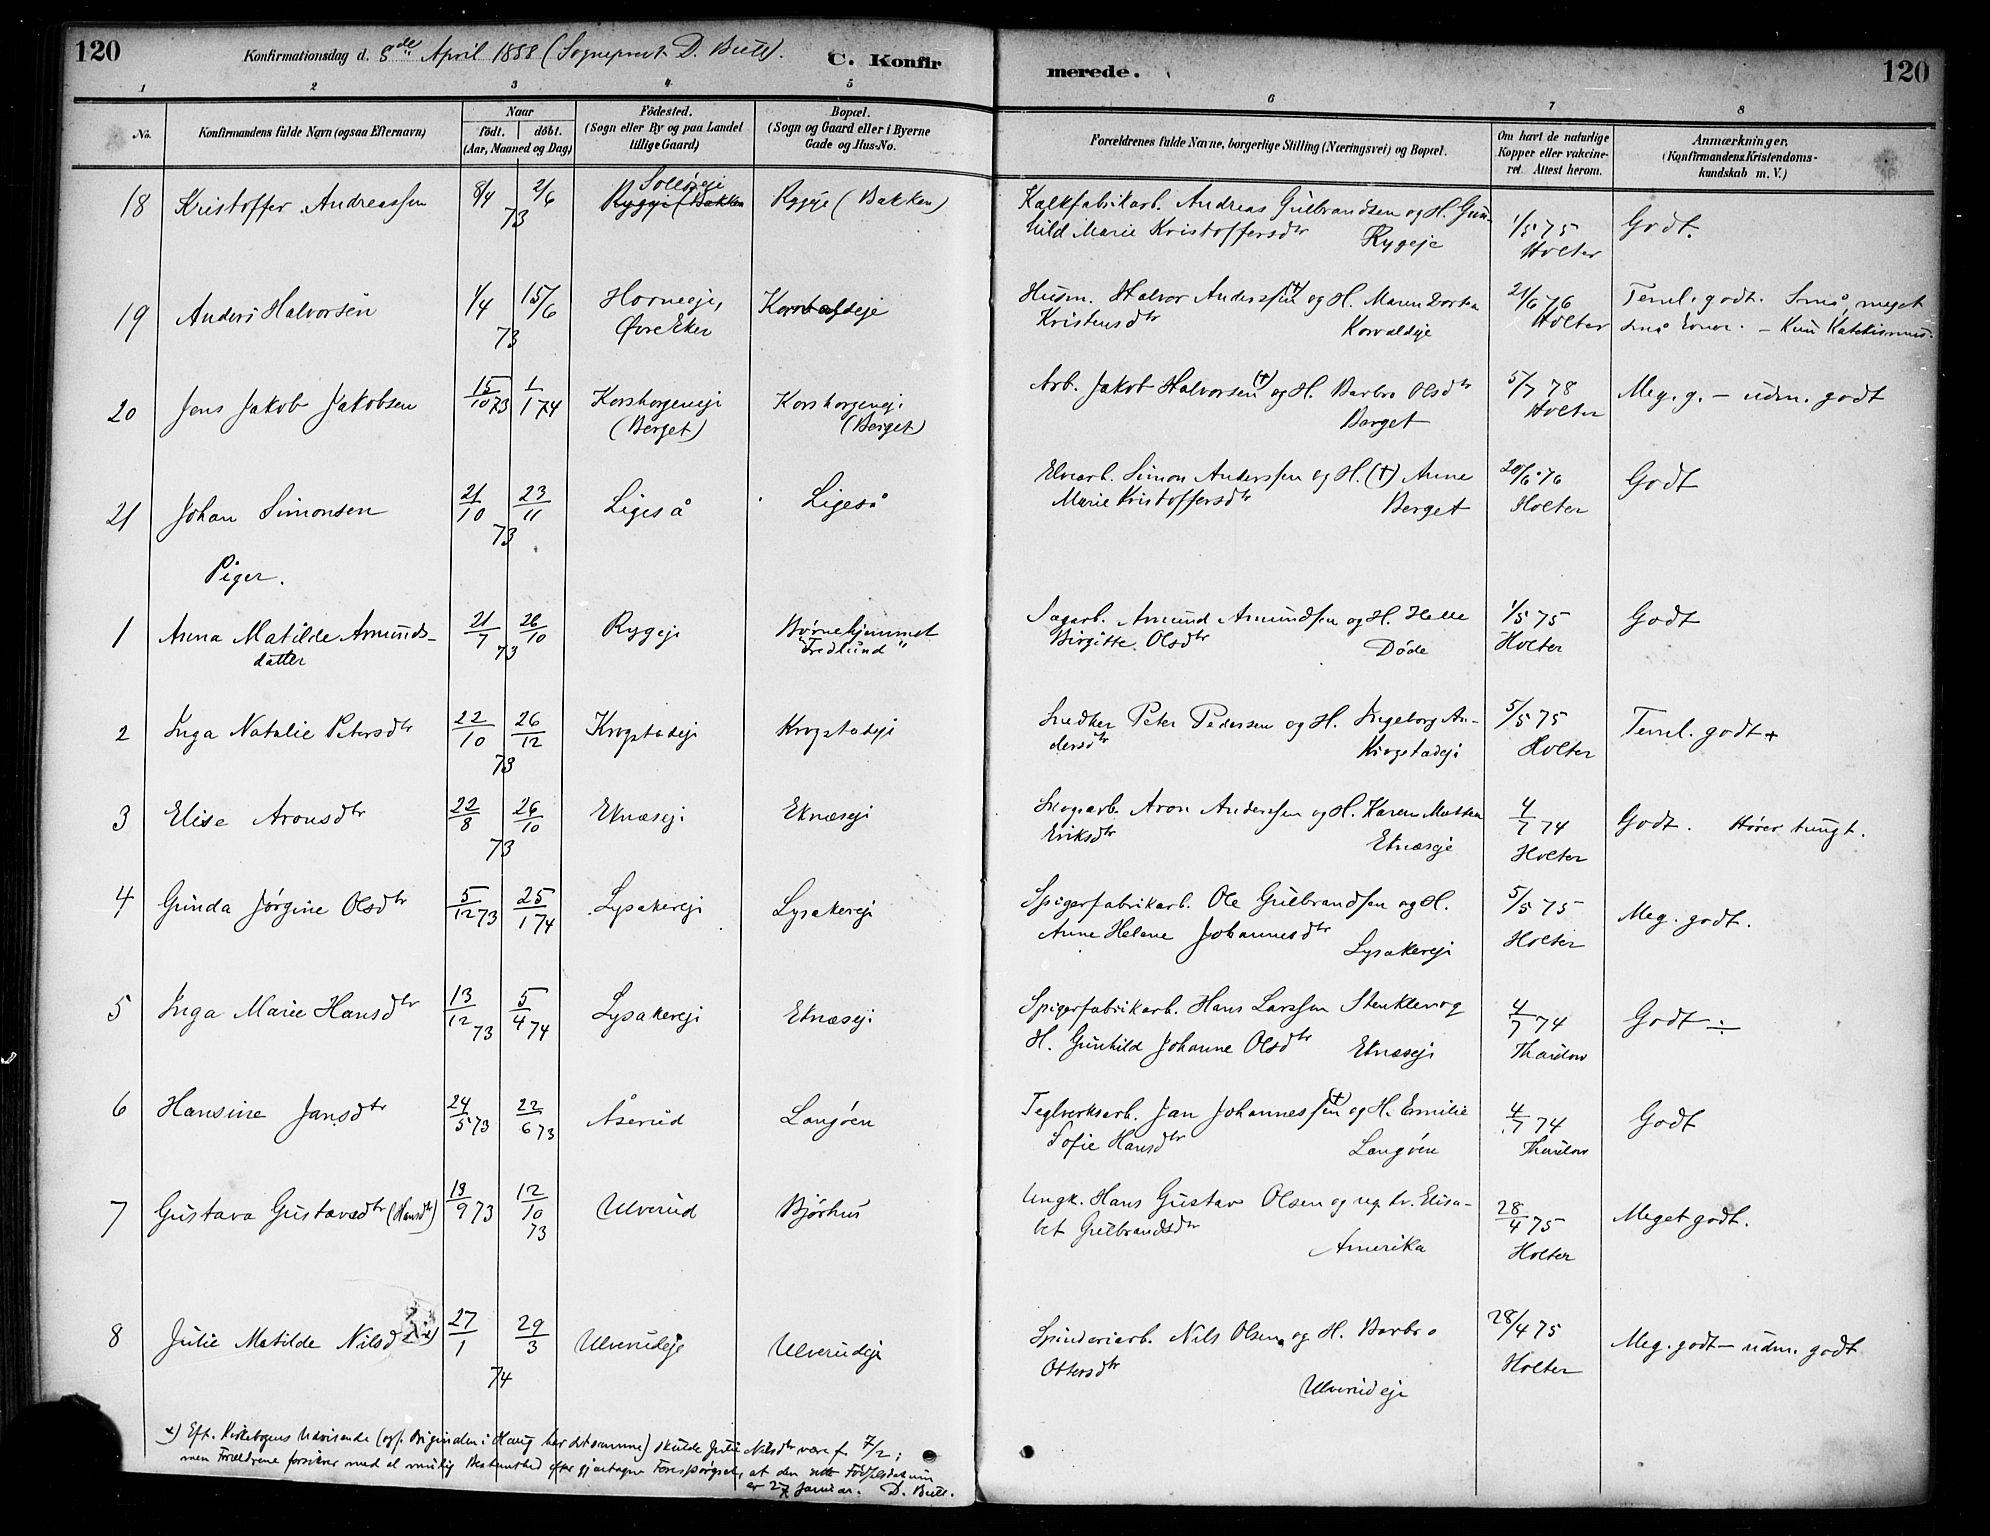 120
Konfirmationsdag d. 8de April 1888 (Sogneprest D. Bull).
C. Konfirmerede.
120
1 2 3 4 5 6 7 8
No.
Konfirmandens fulde Navn (ogsaa Efternavn)
Naar
födt. döbt.
(Aar, Maaned og Dag)
Födested.
(Sogn eller By og paa Landet
tillige Gaard)
Bopæl.
(Sogn og Gaard eller i Byerne
Gade og Hus-No.
Forældrenes fulde Navne, borgerlige Stilling (Næringsvei) og Bopæl.
Om havt de naturlige
Kopper eller vakcine-
ret. Attest herom.
Anmærkninger.
(Konfirmandens Kristendoms-
kundskab m. V.)
18 Kristoffer Andreassen 8/4 2/6 73 Ryggeje (Bakken Rygeje (Bakken)
Kalkfabrikarb. Andreas Gulbrandsen og H. Gun-
hild Marie Kristoffersdtr Rygeje
1/5 75 Holter Godt.
19 Anders Halvorsen 1/4 15/6 73 Horneeje, Øvre Eker Korvaldeje
Husm. Halvor Anderssen (+) og H. Maren Dortea
Kristensdtr Korvaldeje
21/6 76 Holter Teml. godt. Små, meget
små Evner. – Kun Katekismus.
20 Jens Jakob Jakobsen 15/10 73 1/1 74 Korshorgeneje (Berget) Korshorgeneje (Berget)
Arb. Jakob Halvorsen (+) og H. Barbro Olsdtr
Berget
5/7 78 Holter Meg. g. – udm. godt
21 Johan Simonsen 21/10 23/11 73 Ligeså Ligeså
Elvearb. Simon Anderssen og H. (+) Anne
Marie Kristoffersdtr Berget
20/6 76 Holter Godt
Piger.
1 Anna Matilde Amunds-
datter 21/7 26/10 73 Rygeje Børnehjemmet "Fredlund"
Sagarb. Amund Amundsen og H. Helle
Birgitte Olsdtr Døde
1/5 75 Holter Godt
2 Inga Natalie Petersdtr 22/10 26/12 73 Krogstadeje Krogstadeje
Snedker Peter Pedersen og H. Ingeborg An-
dersdtr Krogstadeje
5/5 75 Holter Teml. godt +
3 Elise Aronsdtr 22/8 26/10 73 Etnæseje Etnæseje
Skogsarb. Aron Anderssen og H. Karen Mathea
Eriksdtr Etnæseje
4/7 74 Holter Godt. Hører tungt.
4 Gunda Jørgine Olsdtr 5/12 73 25/1 74 Lysakereje Lysakereje
Spigerfabrikarb. Ole Gulbrandsen og H.
Anne Helene Johannesdtr Lysakereje
5/5 75 Holter Meg. godt.
5 Inga Marie Hansdtr 13/12 73 5/4 74 Lysakereje Etnæseje
Spigerfabrikarb. Hans Larssen Stenklev og
H. Gunhild Johanne Olsdtr Etnæseje
4/7 74 Thaulow Godt ÷
6 Hansine Jansdtr 24/5 73 22/6 73 Åserud Langøen
Teglverksarb. Jan Johannessen (+) og H. Emilie
Sofie Hansdtr Langøen
4/7 74 Thaulow Godt
7 Gustava Gustavsdtr (Hansdtr) 13/9 73 12/10 73 Ulverud Bjørhus
Ungk. Hans Gustav Olsen og ug. kv. Elisa-
bet Gulbrandsdtr Amerika
28/4 75 Holter Meget godt.
8 Julie Matilde Nilsdtr x) 27/1 29/3 74 Ulverudeje Ulverudeje
Spinderiarb. Nils Olsen og H. Barbro
Ottersdtr Ulverudeje
28/4 75 Holter Meg. godt – udm. godt
x) Eft. Kirkebogens Udvisende (ogs. Originalen i Haug har det samme) skulde Julie Nilsdtr være f. 7/2;
men Forældrene forsikrer med al mulig Bestemthed efter gjentagne Forespørgsel, at den rette Fødselsdatum
er 27 Januar. D. Bull.